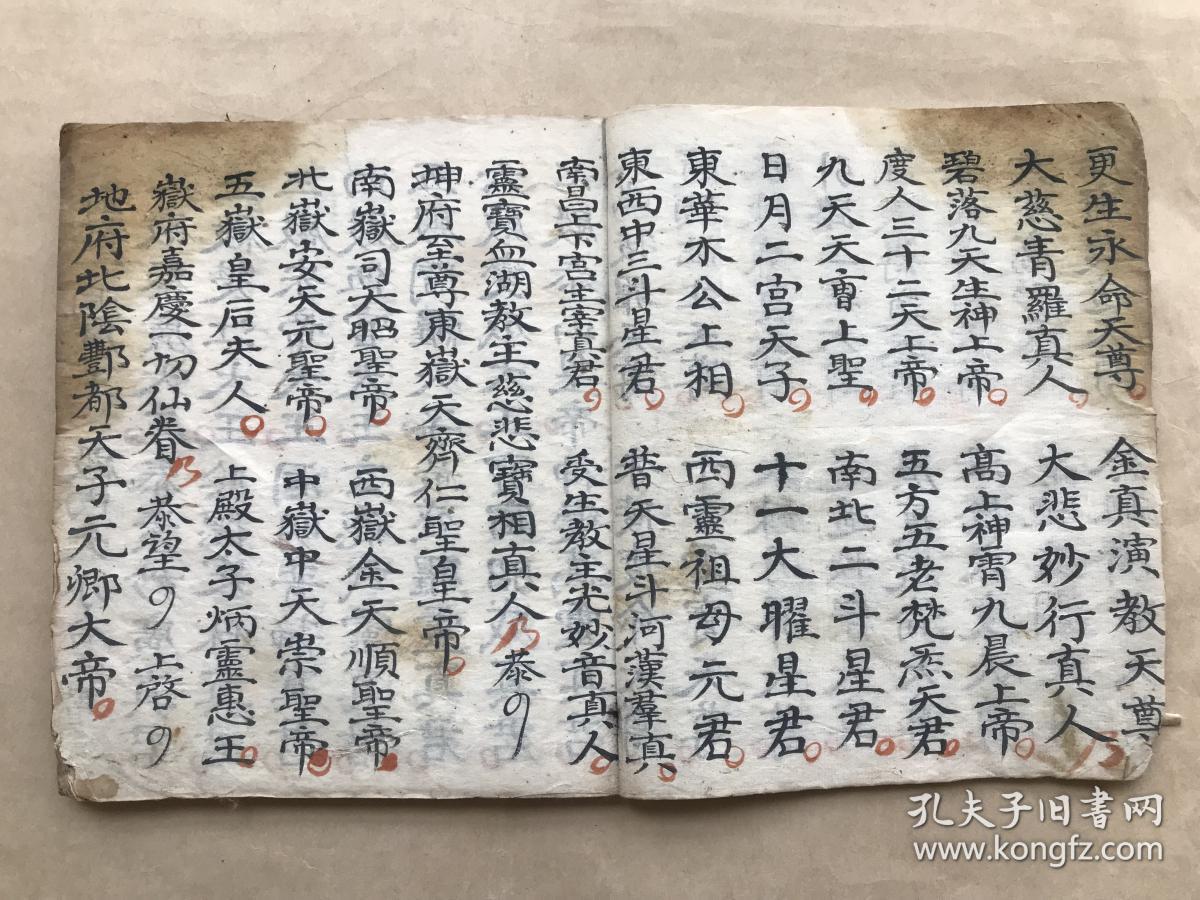 更生永命天尊 金真演教天尊
大慈青羅真人 大悲妙行真人
碧落九天生神上帝 高上神霄九晨上帝
度人三十二天上帝 五方五老梵炁天君
九天天曹上聖 南北二斗星君
日月二宮天子 十一大曜星君
東華木公上相 西靈祖母元君
東西中三斗星君 普天星斗河漢羣真
南昌上下宮主宰真君 受生教主光妙音真人
靈寶血湖教主慈悲寶相真人 乃 恭
坤府至尊東嶽天齊仁聖皇帝
南嶽司天昭聖帝 西嶽金天順聖帝
北嶽安天元聖帝 中嶽中天崇聖帝
五嶽皇后夫人 上殿太子炳靈惠王
嶽府嘉慶一切仙眷 乃 恭望 上啓
地府北陰酆都天子元卿大帝
孔夫子旧书网
www.kongfz.com